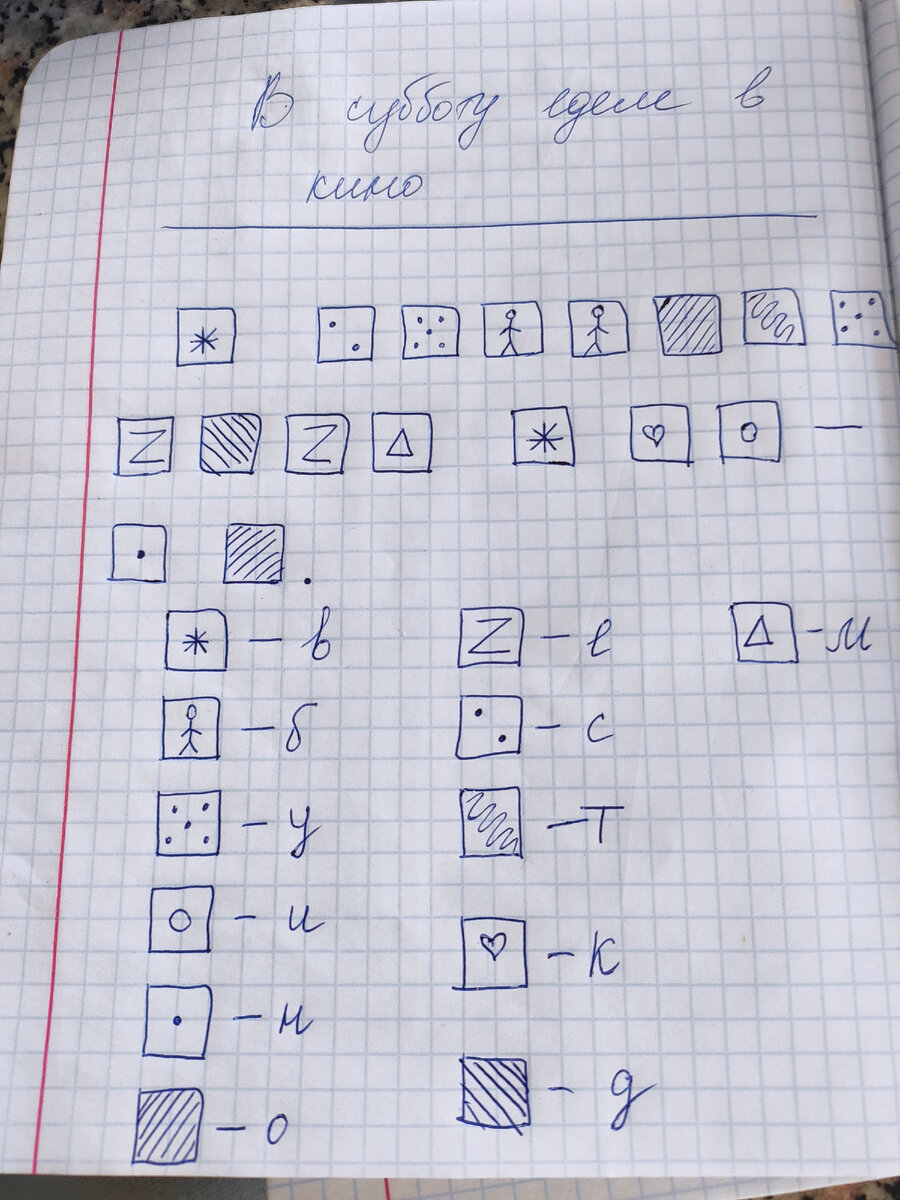 В субботу едем в
кино
— в — е - м
— б — с
— у — т
— и — к
— н
— о — д